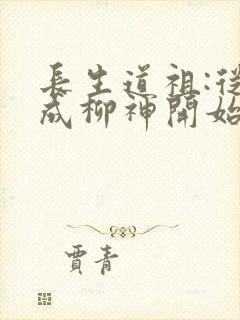 長生道祖:從
成柳神開始
賈青